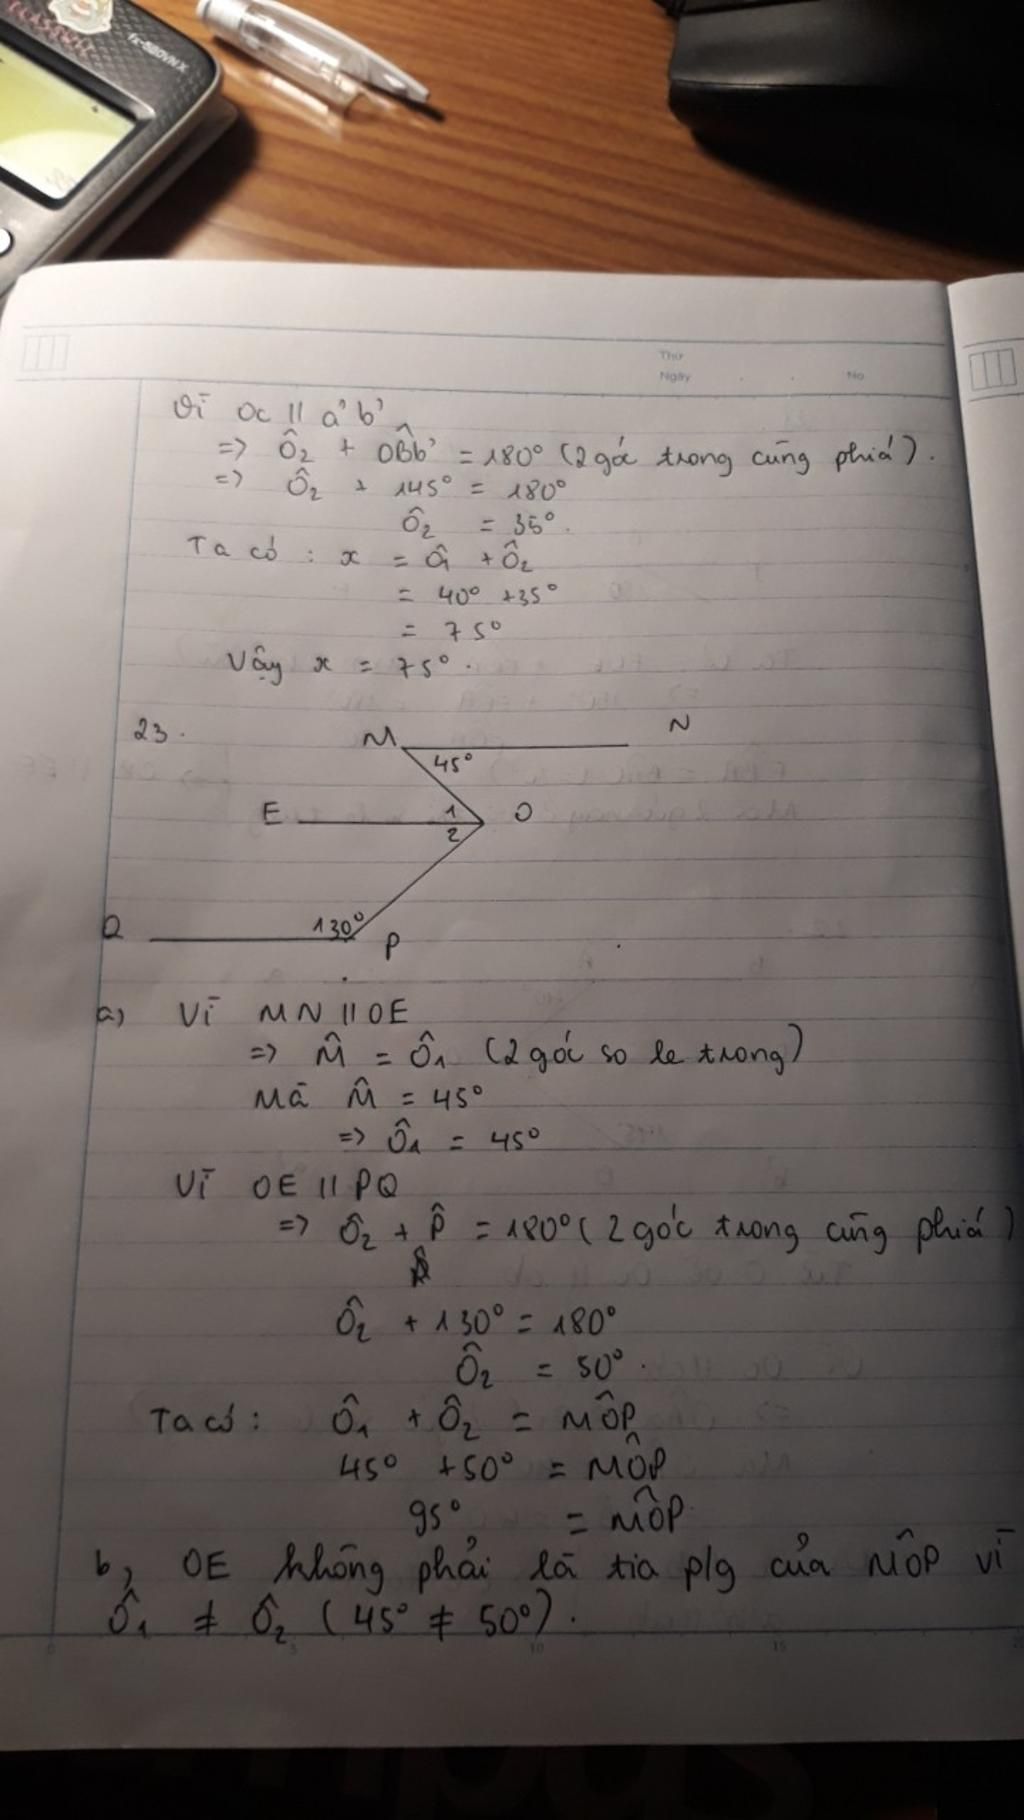 CLASSWIZ
fx-580VNX
Thứ
Ngày . . No
Vì Oc // a'b'
=> Ô₂ + OB̂b' = 180° (2 góc trong cùng phía).
=> Ô₂ + 145° = 180°
Ô₂ = 35°.
Ta có : x = Ô₁ + Ô₂
= 40° + 35°
= 75°
Vậy x = 75°.
23.
M N
45°
E 1 O
2
Q 130° P
a) Vì MN // OE
=> M̂ = Ô₁ (2 góc so le trong)
Mà M̂ = 45°
=> Ô₁ = 45°
Vì OE // PQ
=> Ô₂ + P̂ = 180° (2 góc trong cùng phía)
Ô₂ + 130° = 180°
Ô₂ = 50°.
Ta có : Ô₁ + Ô₂ = MÔP
45° + 50° = MÔP
95° = MÔP
b, OE không phải là tia p/g của MÔP vì
Ô₁ ≠ Ô₂ (45° ≠ 50°).
0 5 10 15 20